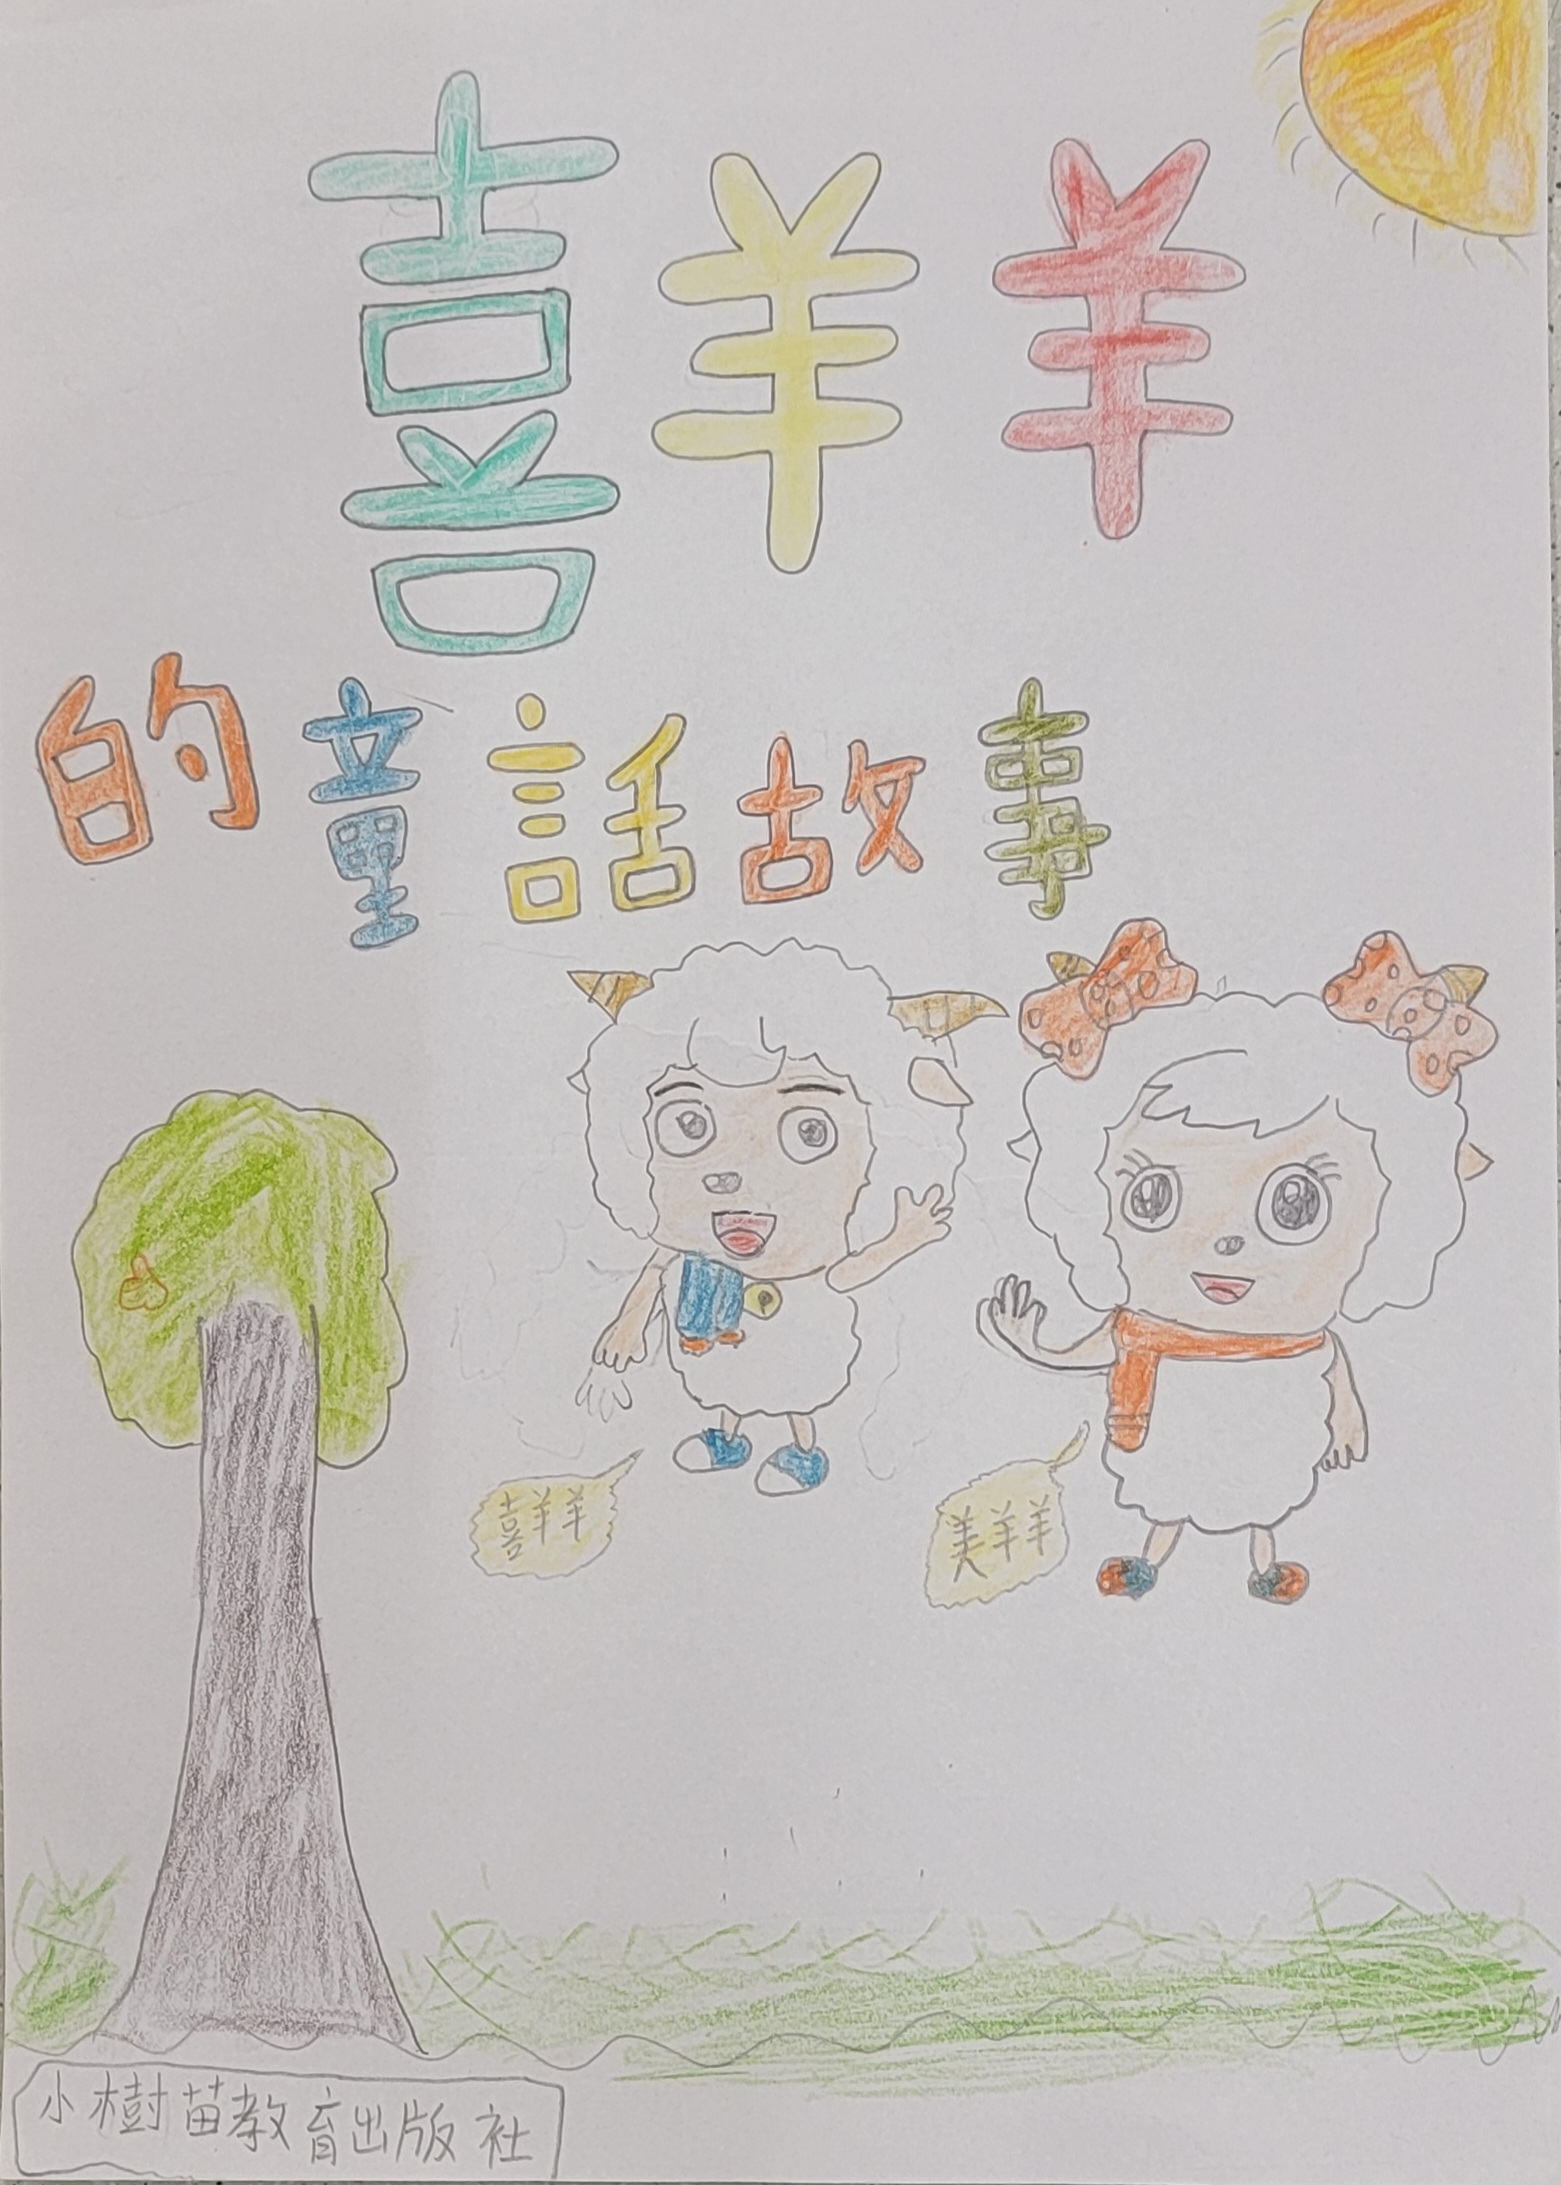 喜羊羊
的童話故事
喜羊羊
美羊羊
小樹苗教育出版社